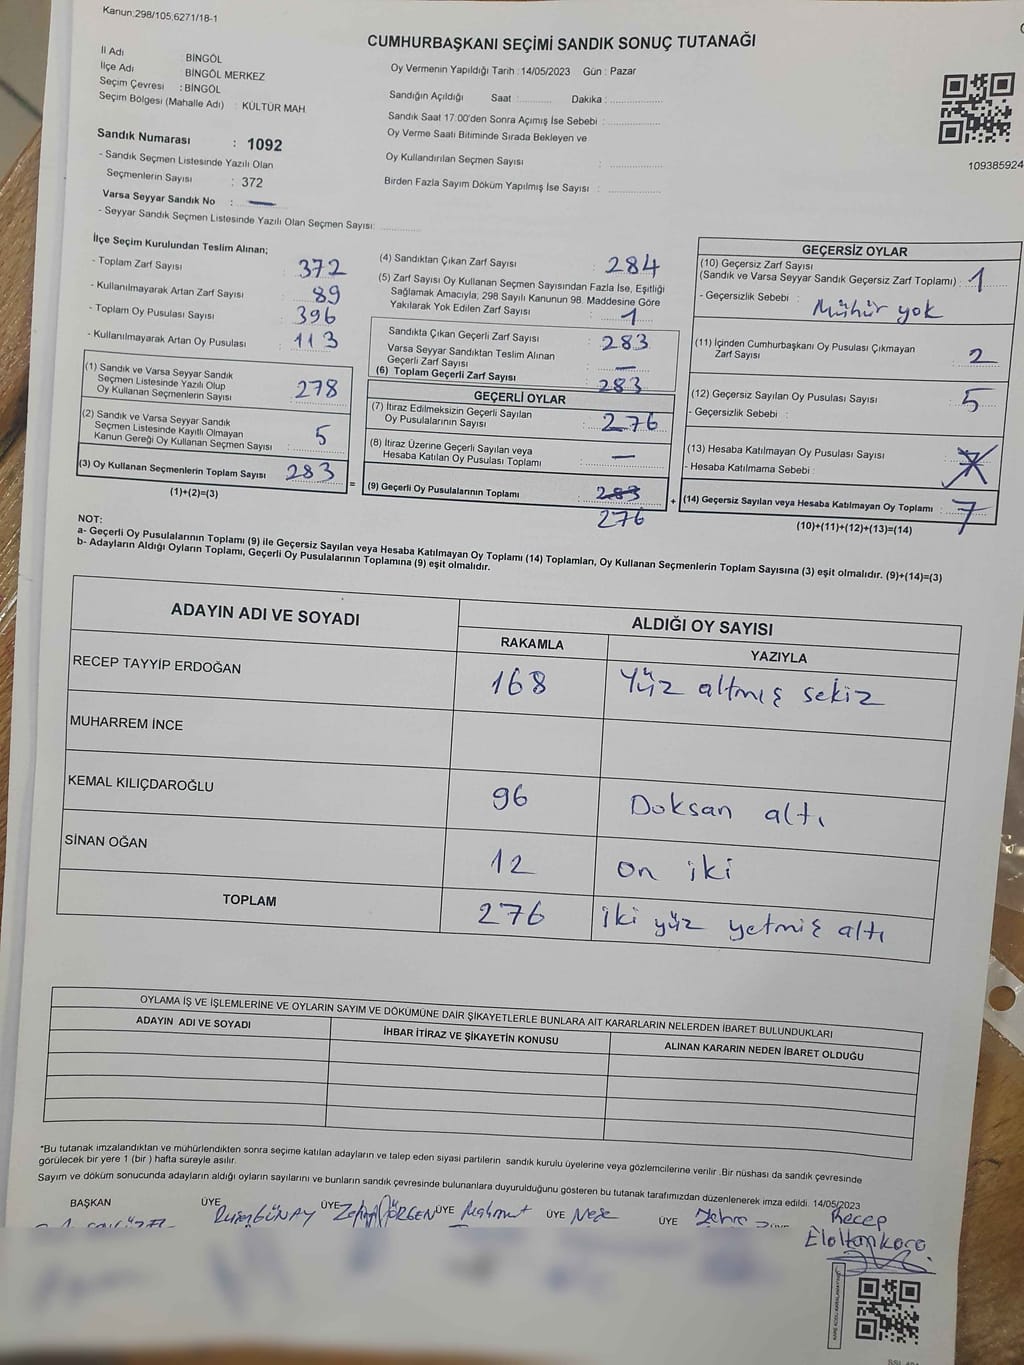 Kanun:298/105,6271/18-1
CUMHURBAŞKANI SEÇİMİ SANDIK SONUÇ TUTANAĞI
İl Adı : BİNGÖL
İlçe Adı : BİNGÖL MERKEZ
Seçim Çevresi : BİNGÖL
Seçim Bölgesi (Mahalle Adı) : KÜLTÜR MAH.
Oy Vermenin Yapıldığı Tarih : 14/05/2023 Gün : Pazar
Sandığın Açıldığı Saat :............ Dakika :................
Sandık Saat 17:00'den Sonra Açımış İse Sebebi :................
Oy Verme Saati Bitiminde Sırada Bekleyen ve
Oy Kullandırılan Seçmen Sayısı :................
Birden Fazla Sayım Döküm Yapılmış İse Sayısı :................
109385924
Sandık Numarası : 1092
- Sandık Seçmen Listesinde Yazılı Olan
Seçmenlerin Sayısı : 372
Varsa Seyyar Sandık No : —
- Seyyar Sandık Seçmen Listesinde Yazılı Olan Seçmen Sayısı:............
İlçe Seçim Kurulundan Teslim Alınan;
- Toplam Zarf Sayısı : 372
- Kullanılmayarak Artan Zarf Sayısı : 89
- Toplam Oy Pusulası Sayısı : 396
- Kullanılmayarak Artan Oy Pusulası : 113
(1) Sandık ve Varsa Seyyar Sandık
Seçmen Listesinde Yazılı Olup
Oy Kullanan Seçmenlerin Sayısı : 278
(2) Sandık ve Varsa Seyyar Sandık
Seçmen Listesinde Kayıtlı Olmayan
Kanun Gereği Oy Kullanan Seçmen Sayısı : 5
(3) Oy Kullanan Seçmenlerin Toplam Sayısı : 283
(1)+(2)=(3)
=
(4) Sandıktan Çıkan Zarf Sayısı : 284
(5) Zarf Sayısı Oy Kullanan Seçmen Sayısından Fazla İse, Eşitliği
Sağlamak Amacıyla, 298 Sayılı Kanunun 98. Maddesine Göre
Yakılarak Yok Edilen Zarf Sayısı : 1
Sandıkta Çıkan Geçerli Zarf Sayısı : 283
Varsa Seyyar Sandıktan Teslim Alınan
Geçerli Zarf Sayısı : —
(6) Toplam Geçerli Zarf Sayısı : 283
GEÇERLİ OYLAR
(7) İtiraz Edilmeksizin Geçerli Sayılan
Oy Pusulalarının Sayısı : 276
(8) İtiraz Üzerine Geçerli Sayılan veya
Hesaba Katılan Oy Pusulası Toplamı : —
(9) Geçerli Oy Pusulalarının Toplamı : 283
276
+
GEÇERSİZ OYLAR
(10) Geçersiz Zarf Sayısı
(Sandık ve Varsa Seyyar Sandık Geçersiz Zarf Toplamı) : 1
- Geçersizlik Sebebi : Mühür yok
(11) İçinden Cumhurbaşkanı Oy Pusulası Çıkmayan
Zarf Sayısı : 2
(12) Geçersiz Sayılan Oy Pusulası Sayısı : 5
- Geçersizlik Sebebi :
(13) Hesaba Katılmayan Oy Pusulası Sayısı :
- Hesaba Katılmama Sebebi :
(14) Geçersiz Sayılan veya Hesaba Katılmayan Oy Toplamı : 7
(10)+(11)+(12)+(13)=(14)
NOT:
a- Geçerli Oy Pusulalarının Toplamı (9) ile Geçersiz Sayılan veya Hesaba Katılmayan Oy Toplamı (14) Toplamları, Oy Kullanan Seçmenlerin Toplam Sayısına (3) eşit olmalıdır. (9)+(14)=(3)
b- Adayların Aldığı Oyların Toplamı, Geçerli Oy Pusulalarının Toplamına (9) eşit olmalıdır.
ADAYIN ADI VE SOYADI ALDIĞI OY SAYISI
RAKAMLA YAZIYLA
RECEP TAYYİP ERDOĞAN 168 Yüz altmış sekiz
MUHARREM İNCE
KEMAL KILIÇDAROĞLU 96 Doksan altı
SİNAN OĞAN 12 on iki
TOPLAM 276 iki yüz yetmiş altı
OYLAMA İŞ VE İŞLEMLERİNE VE OYLARIN SAYIM VE DÖKÜMÜNE DAİR ŞİKAYETLERLE BUNLARA AİT KARARLARIN NELERDEN İBARET BULUNDUKLARI
ADAYIN ADI VE SOYADI İHBAR İTİRAZ VE ŞİKAYETİN KONUSU ALINAN KARARIN NEDEN İBARET OLDUĞU
*Bu tutanak imzalandıktan ve mühürlendikten sonra seçime katılan adayların ve talep eden siyasi partilerin sandık kurulu üyelerine veya gözlemcilerine verilir .Bir nüshası da sandık çevresinde
görülecek bir yere 1 (bir ) hafta süreyle asılır.
Sayım ve döküm sonucunda adayların aldığı oyların sayılarını ve bunların sandık çevresinde bulunanlara duyurulduğunu gösteren bu tutanak tarafımızdan düzenlenerek imza edildi. 14/05/2023
BAŞKAN ÜYE ÜYE ÜYE ÜYE ÜYE
GÜNAY Mahmut Neşe Zehra Recep